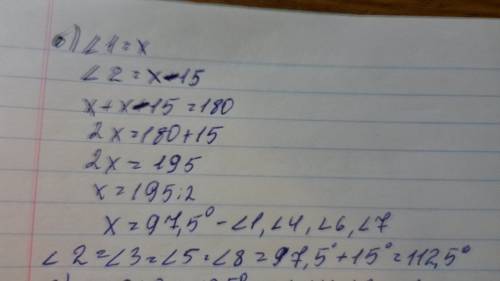 б) ∠1=x
∠2=x-15
x+x-15=180
2x=180+15
2x=195
x=195:2
x=97,5° - ∠1, ∠4, ∠6, ∠7
∠2=∠3=∠5=∠8=97,5°+15°=112,5°